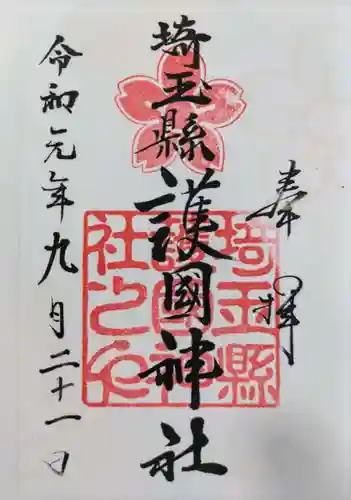 奉拝
埼玉縣護國神社
令和元年九月二十一日
埼玉縣
護國神
社之印